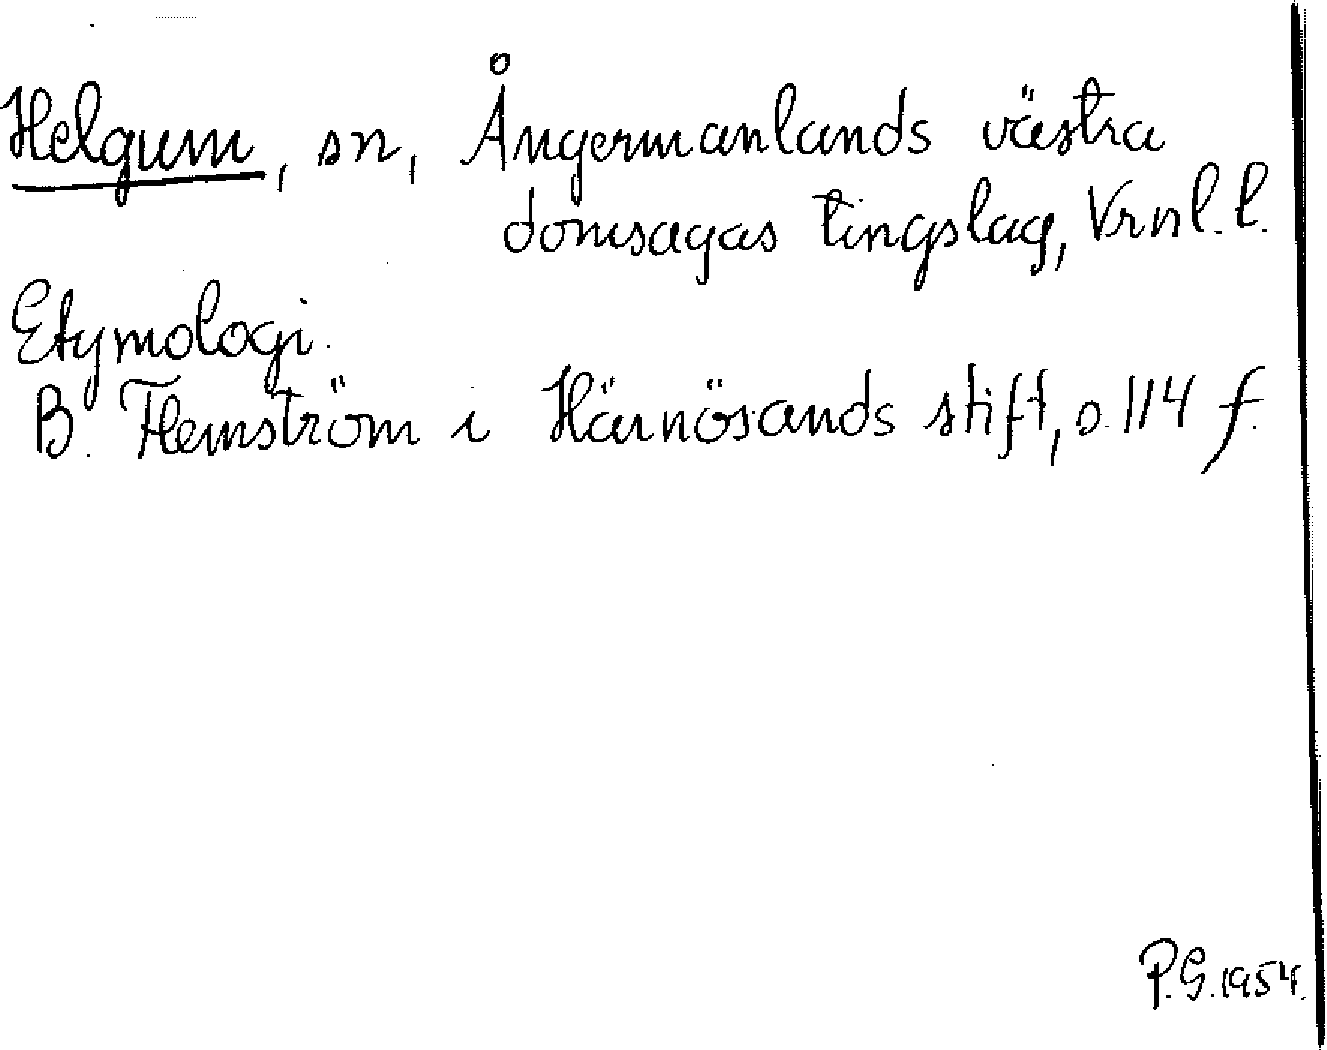 Helgum, sn, Ångermanlands västra
domsagas tingslag, Vrnl. l.
Etymologi.
B. Flemström i Härnösands stift, s. 114 f.
P.G. 1954.